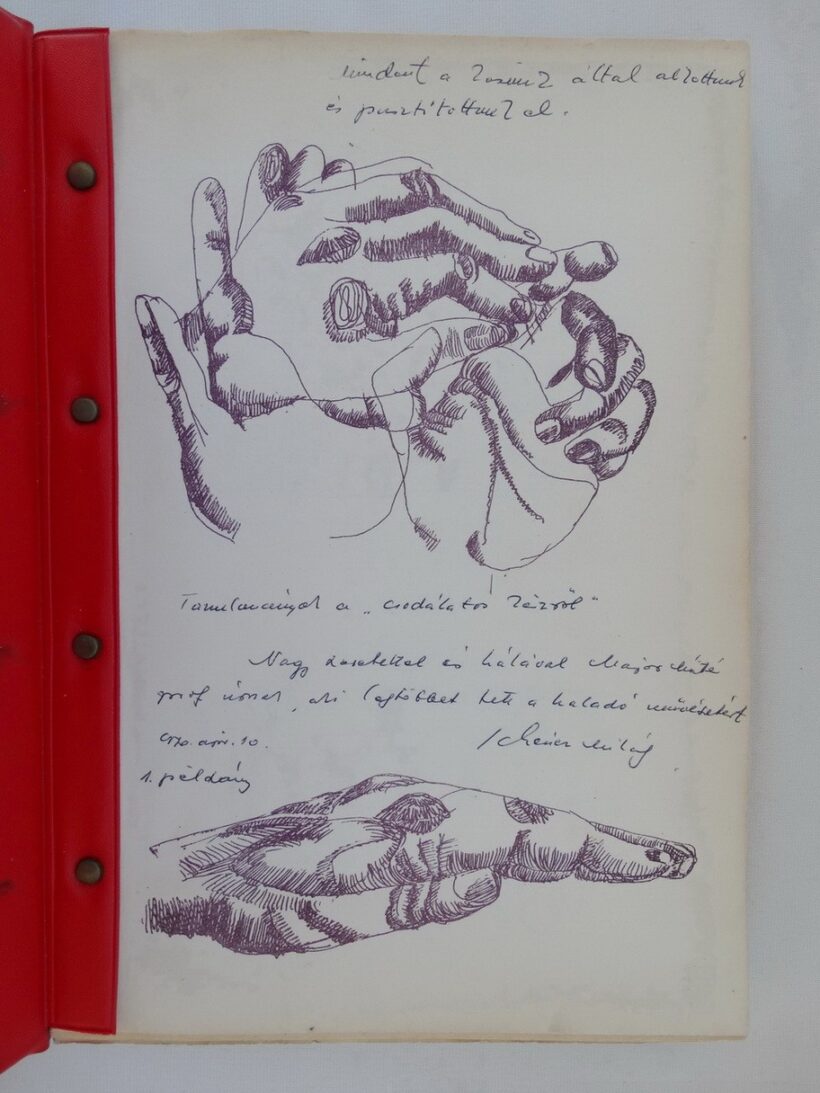 mindent a kezünk által alkottunk
és pusztítottunk el.
Tanulmányok a „csodálatos kézről"
Nagy szeretettel és hálával Major Máté
prof. úrnak, aki legtöbbet tett a haladó művészetért
1970. ápr. 10.
Scheuer Mihály
1. példány